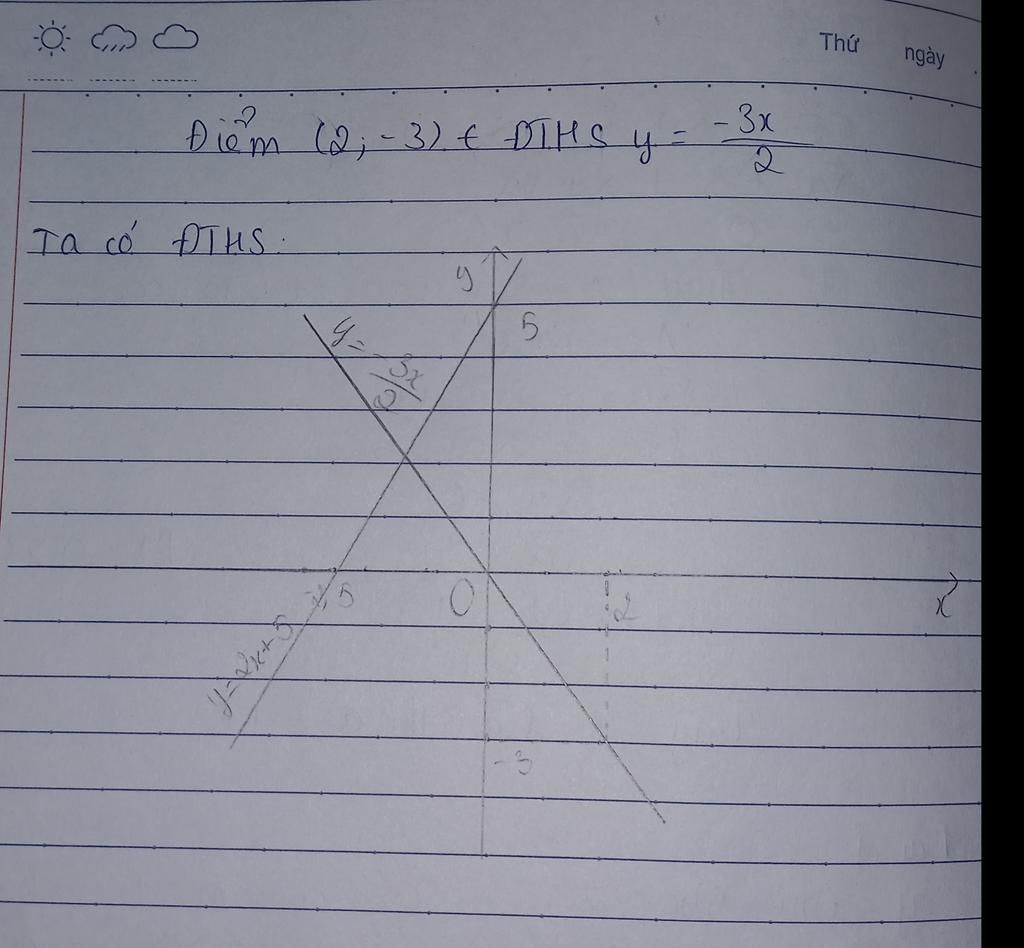 Thứ ngày
Điểm (2; -3) ∈ ĐTHS y = -3x/2
Ta có ĐTHS:
y
5
y = -3x/2
O
2
x
y = 2x + 5
-3